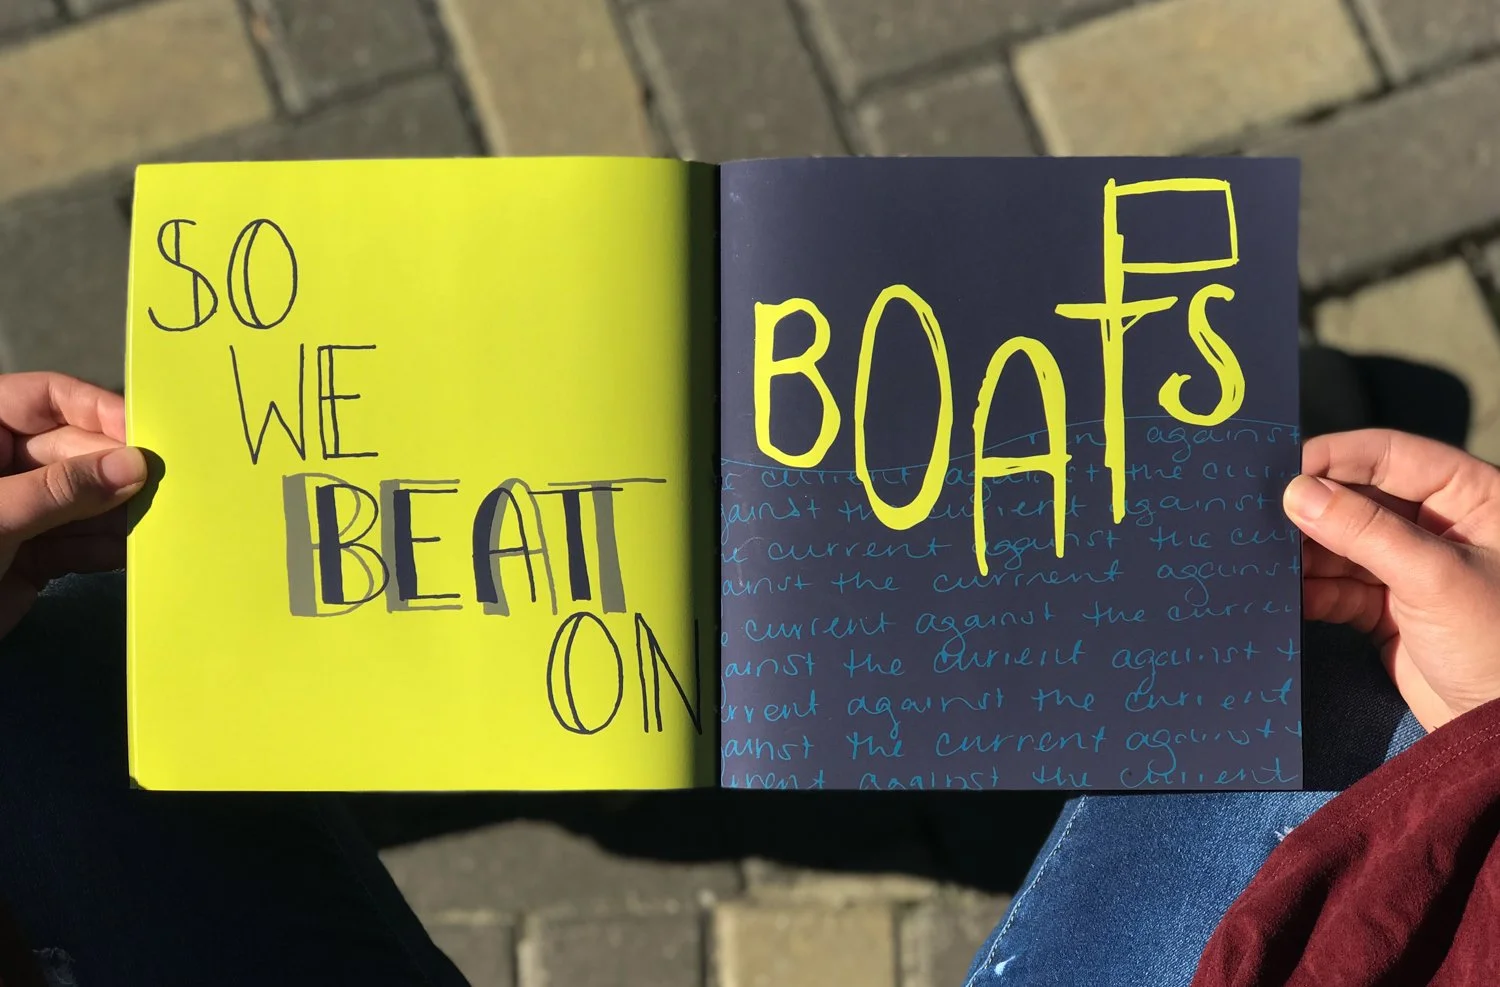 SO
WE
BEAT
ON
BOATS
against
current against the
against the current against
current against the
against the current against
current against the
against the current against
current against the current
against the current against
current against the current